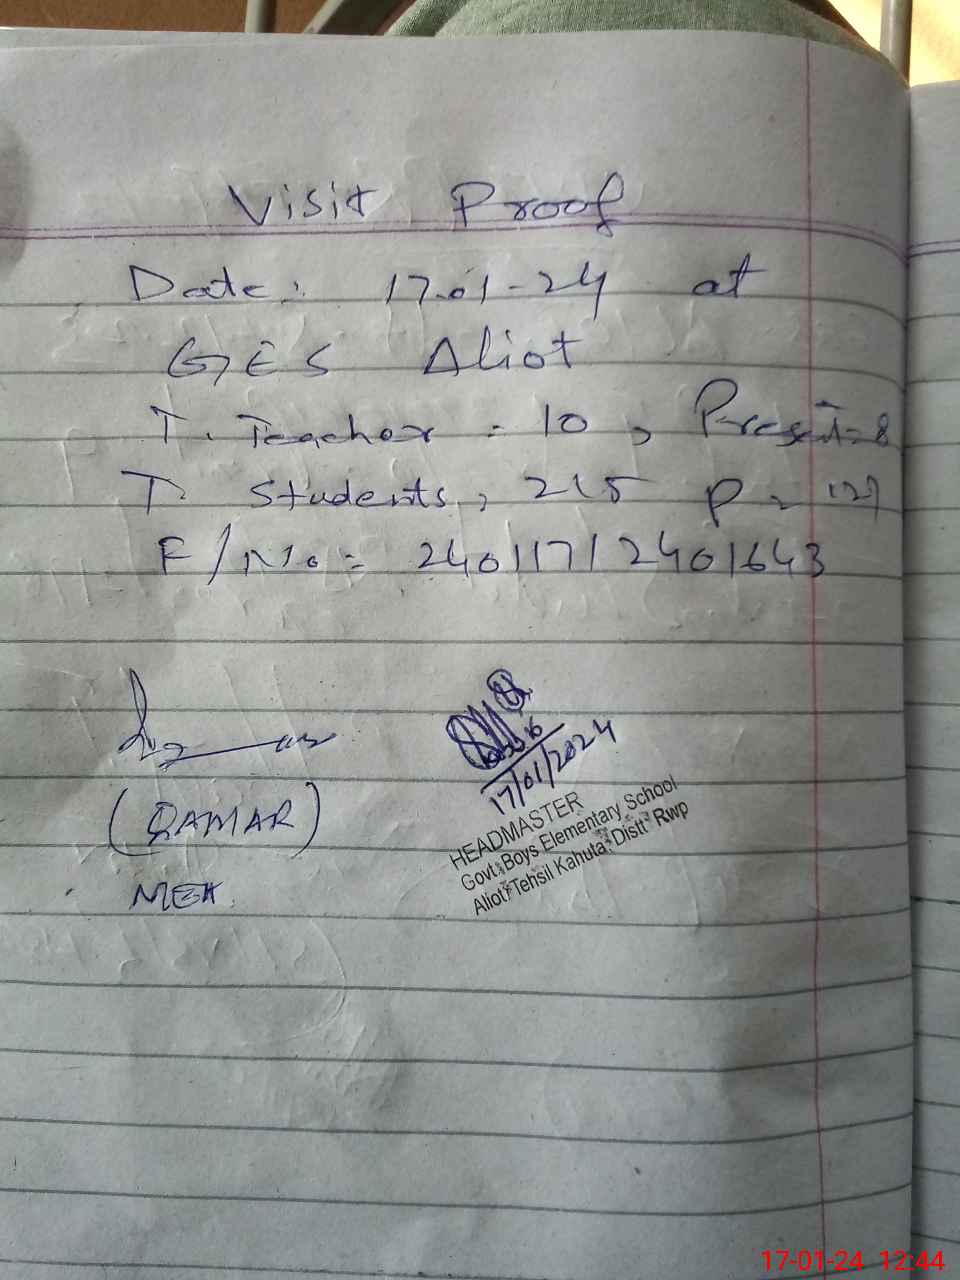 Visit Proof
Date: 17.01-24 at
GES Aliot
T. Teacher = 10, Present = 8
T. Students, 215 P = 127
F/No = 240117/2401643
(QAMAR)
MEA
17/01/2024
HEADMASTER
Govt; Boys Elementary School
Aliot Tehsil Kahuta Distt Rwp
17-01-24 12:44